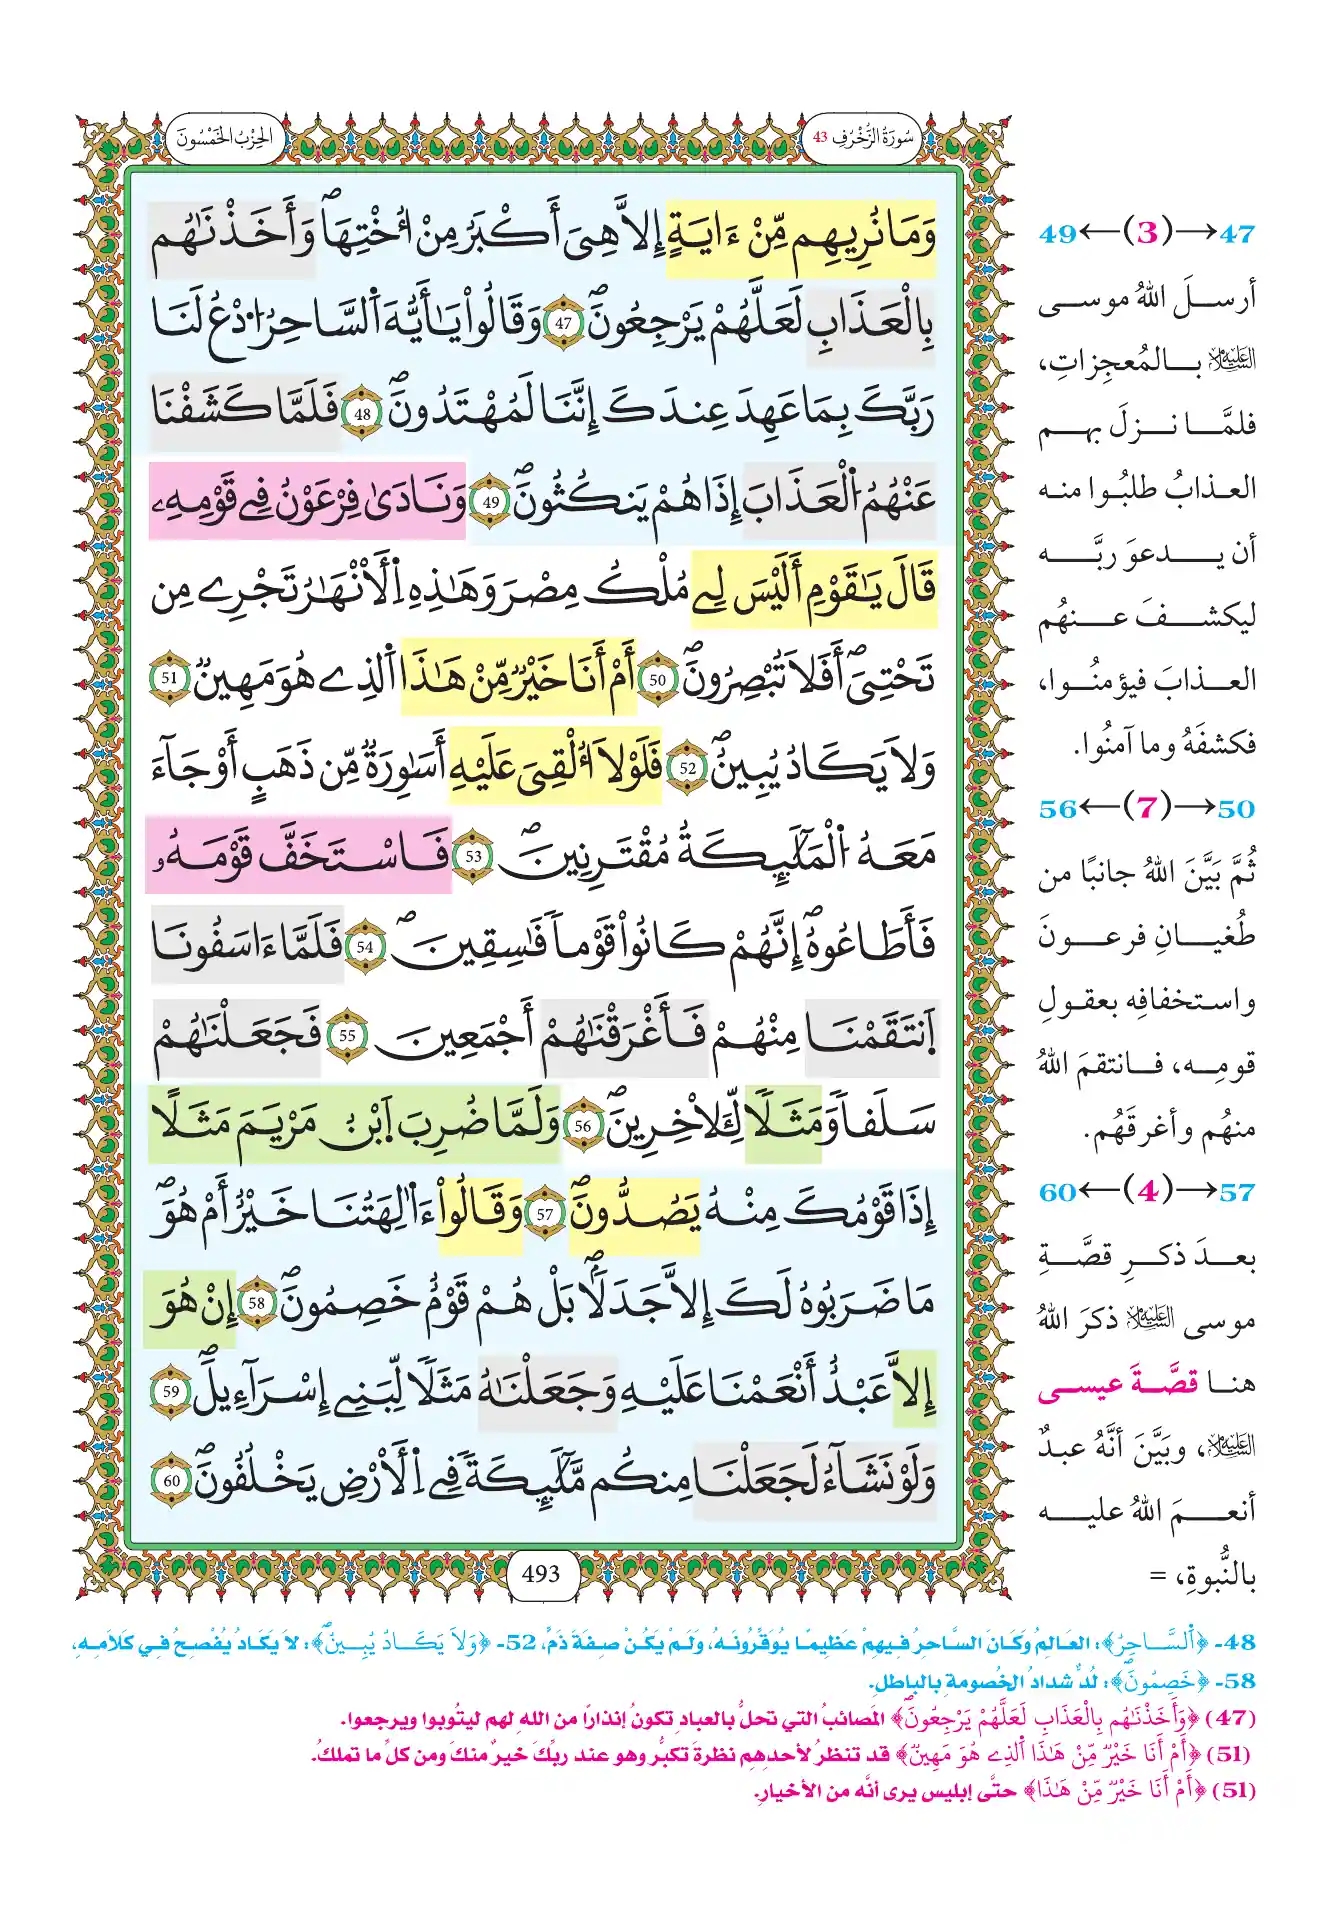 سُورَةُ الزُّخْرُفِ 43
الحِزْبُ الخَمْسُونَ
وَمَا نُرِيهِم مِّنْ ءَايَةٍ إِلَّا هِيَ أَكْبَرُ مِنْ أُخْتِهَاۖ وَأَخَذْنَٰهُم
بِالْعَذَابِ لَعَلَّهُمْ يَرْجِعُونَۖ 47 وَقَالُواْ يَٰأَيُّهَ اَ۬لسَّاحِرُ اُ۟دْعُ لَنَا
رَبَّكَ بِمَا عَهِدَ عِندَكَ إِنَّنَا لَمُهْتَدُونَۖ 48 فَلَمَّا كَشَفْنَا
عَنْهُمُ اُ۬لْعَذَابَ إِذَا هُمْ يَنكُثُونَۖ 49 وَنَادَىٰ فِرْعَوْنُ فِے قَوْمِهِۦ
قَالَ يَٰقَوْمِ أَلَيْسَ لِے مُلْكُ مِصْرَ وَهَٰذِهِ اِ۬لْأَنْهَٰرُ تَجْرِے مِن
تَحْتِيَۖ أَفَلَا تُبْصِرُونَۖ 50 أَمْ أَنَا خَيْرٌ مِّنْ هَٰذَا اَ۬لذِے هُوَ مَهِينٌ 51
وَلَا يَكَادُ يُبِينُۖ 52 فَلَوْلَا أُلْقِيَ عَلَيْهِ أَسَٰوِرَةٌ مِّن ذَهَبٍ أَوْ جَآءَ
مَعَهُ اُ۬لْمَلَٰٓئِكَةُ مُقْتَرِنِينَۖ 53 فَاسْتَخَفَّ قَوْمَهُۥ
فَأَطَاعُوهُۖ إِنَّهُمْ كَانُواْ قَوْماً فَٰسِقِينَۖ 54 فَلَمَّا ءَاسَفُونَا
اَ۪نتَقَمْنَا مِنْهُمْ فَأَغْرَقْنَٰهُمْ أَجْمَعِينَ 55 فَجَعَلْنَٰهُمْ
سَلَفاً وَمَثَلًا لِّلْأٓخِرِينَۖ 56 وَلَمَّا ضُرِبَ اَ۪بْنُ مَرْيَمَ مَثَلًا
إِذَا قَوْمُكَ مِنْهُ يَصُدُّونَۖ 57 وَقَالُواْ ءَاٰ۬لِهَتُنَا خَيْرٌ أَمْ هُوَۖ
مَا ضَرَبُوهُ لَكَ إِلَّا جَدَلَۢاۖ بَلْ هُمْ قَوْمٌ خَصِمُونَۖ 58 إِنْ هُوَ
إِلَّا عَبْدٌ أَنْعَمْنَا عَلَيْهِ وَجَعَلْنَٰهُ مَثَلًا لِّبَنِے إِسْرَآءِيلَۖ 59
وَلَوْ نَشَآءُ لَجَعَلْنَا مِنكُم مَّلَٰٓئِكَةً فِے اِ۬لْأَرْضِ يَخْلُفُونَۖ 60
493
47→(3)←49
أرسلَ اللهُ موسى
عليه السلام بالمُعجِزاتِ،
فلمَّا نزلَ بهم
العذابُ طلبُوا منه
أن يدعوَ ربَّه
ليكشفَ عنهُم
العذابَ فيؤمنُوا،
فكشفَهُ وما آمنُوا.
50→(7)←56
ثُمَّ بَيَّنَ اللهُ جانبًا من
طُغيانِ فرعونَ
واستخفافِه بعقولِ
قومِه، فانتقمَ اللهُ
منهُم وأغرقَهُم.
57→(4)←60
بعدَ ذكرِ قصَّةِ
موسى عليه السلام ذكرَ اللهُ
هنا قصَّةَ عيسى
عليه السلام، وبَيَّنَ أنَّهُ عبدٌ
أنعمَ اللهُ عليه
بالنُّبوةِ، =
48- ﴿اَ۬لسَّاحِرُ﴾: العَالِمُ وَكَانَ السَّاحرُ فيهِمْ عَظِيمًا يُوَقِّرُونَهُ، وَلَمْ يَكُنْ صِفَةَ ذَمٍّ، 52- ﴿وَلَا يَكَادُ يُبِينُۖ﴾: لا يَكَادُ يُفْصِحُ فِي كَلامِهِ،
58- ﴿خَصِمُونَۖ﴾: لُدٌّ شدادُ الخُصومةِ بالباطلِ.
(47) ﴿وَأَخَذْنَٰهُم بِالْعَذَابِ لَعَلَّهُمْ يَرْجِعُونَۖ﴾ المصائبُ التي تحلُّ بالعبادِ تكونُ إنذارًا من اللهِ لهم ليتُوبوا ويرجعوا.
(51) ﴿أَمْ أَنَا خَيْرٌ مِّنْ هَٰذَا اَ۬لذِے هُوَ مَهِينٌ﴾ قد تنظرُ لأحدِهِم نظرةَ تكبُّر وهو عند ربِّكَ خيرٌ منكَ ومن كلِّ ما تملكُ.
(51) ﴿أَمْ أَنَا خَيْرٌ مِّنْ هَٰذَا﴾ حتَّى إبليس يرى أنَّه من الأخيارِ.